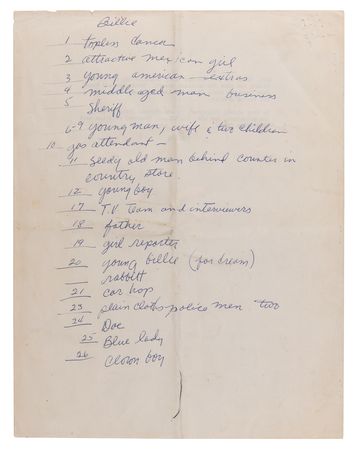 Billie
1 topless dancer
2 attractive mexican girl
3 young american - extras
4 middle aged man business
5 Sheriff
6-9 young man, wife & two children
10 gas attendant -
11 seedy old man behind counter in
country store.
12 young boy
17 T.V team and interviewers
18 father
19 girl reporter
20 young billie (for dream)
rabbitt
21 car hops
23 plain cloths-police men two
24 Doc
25 Blue lady
26 Clown boy